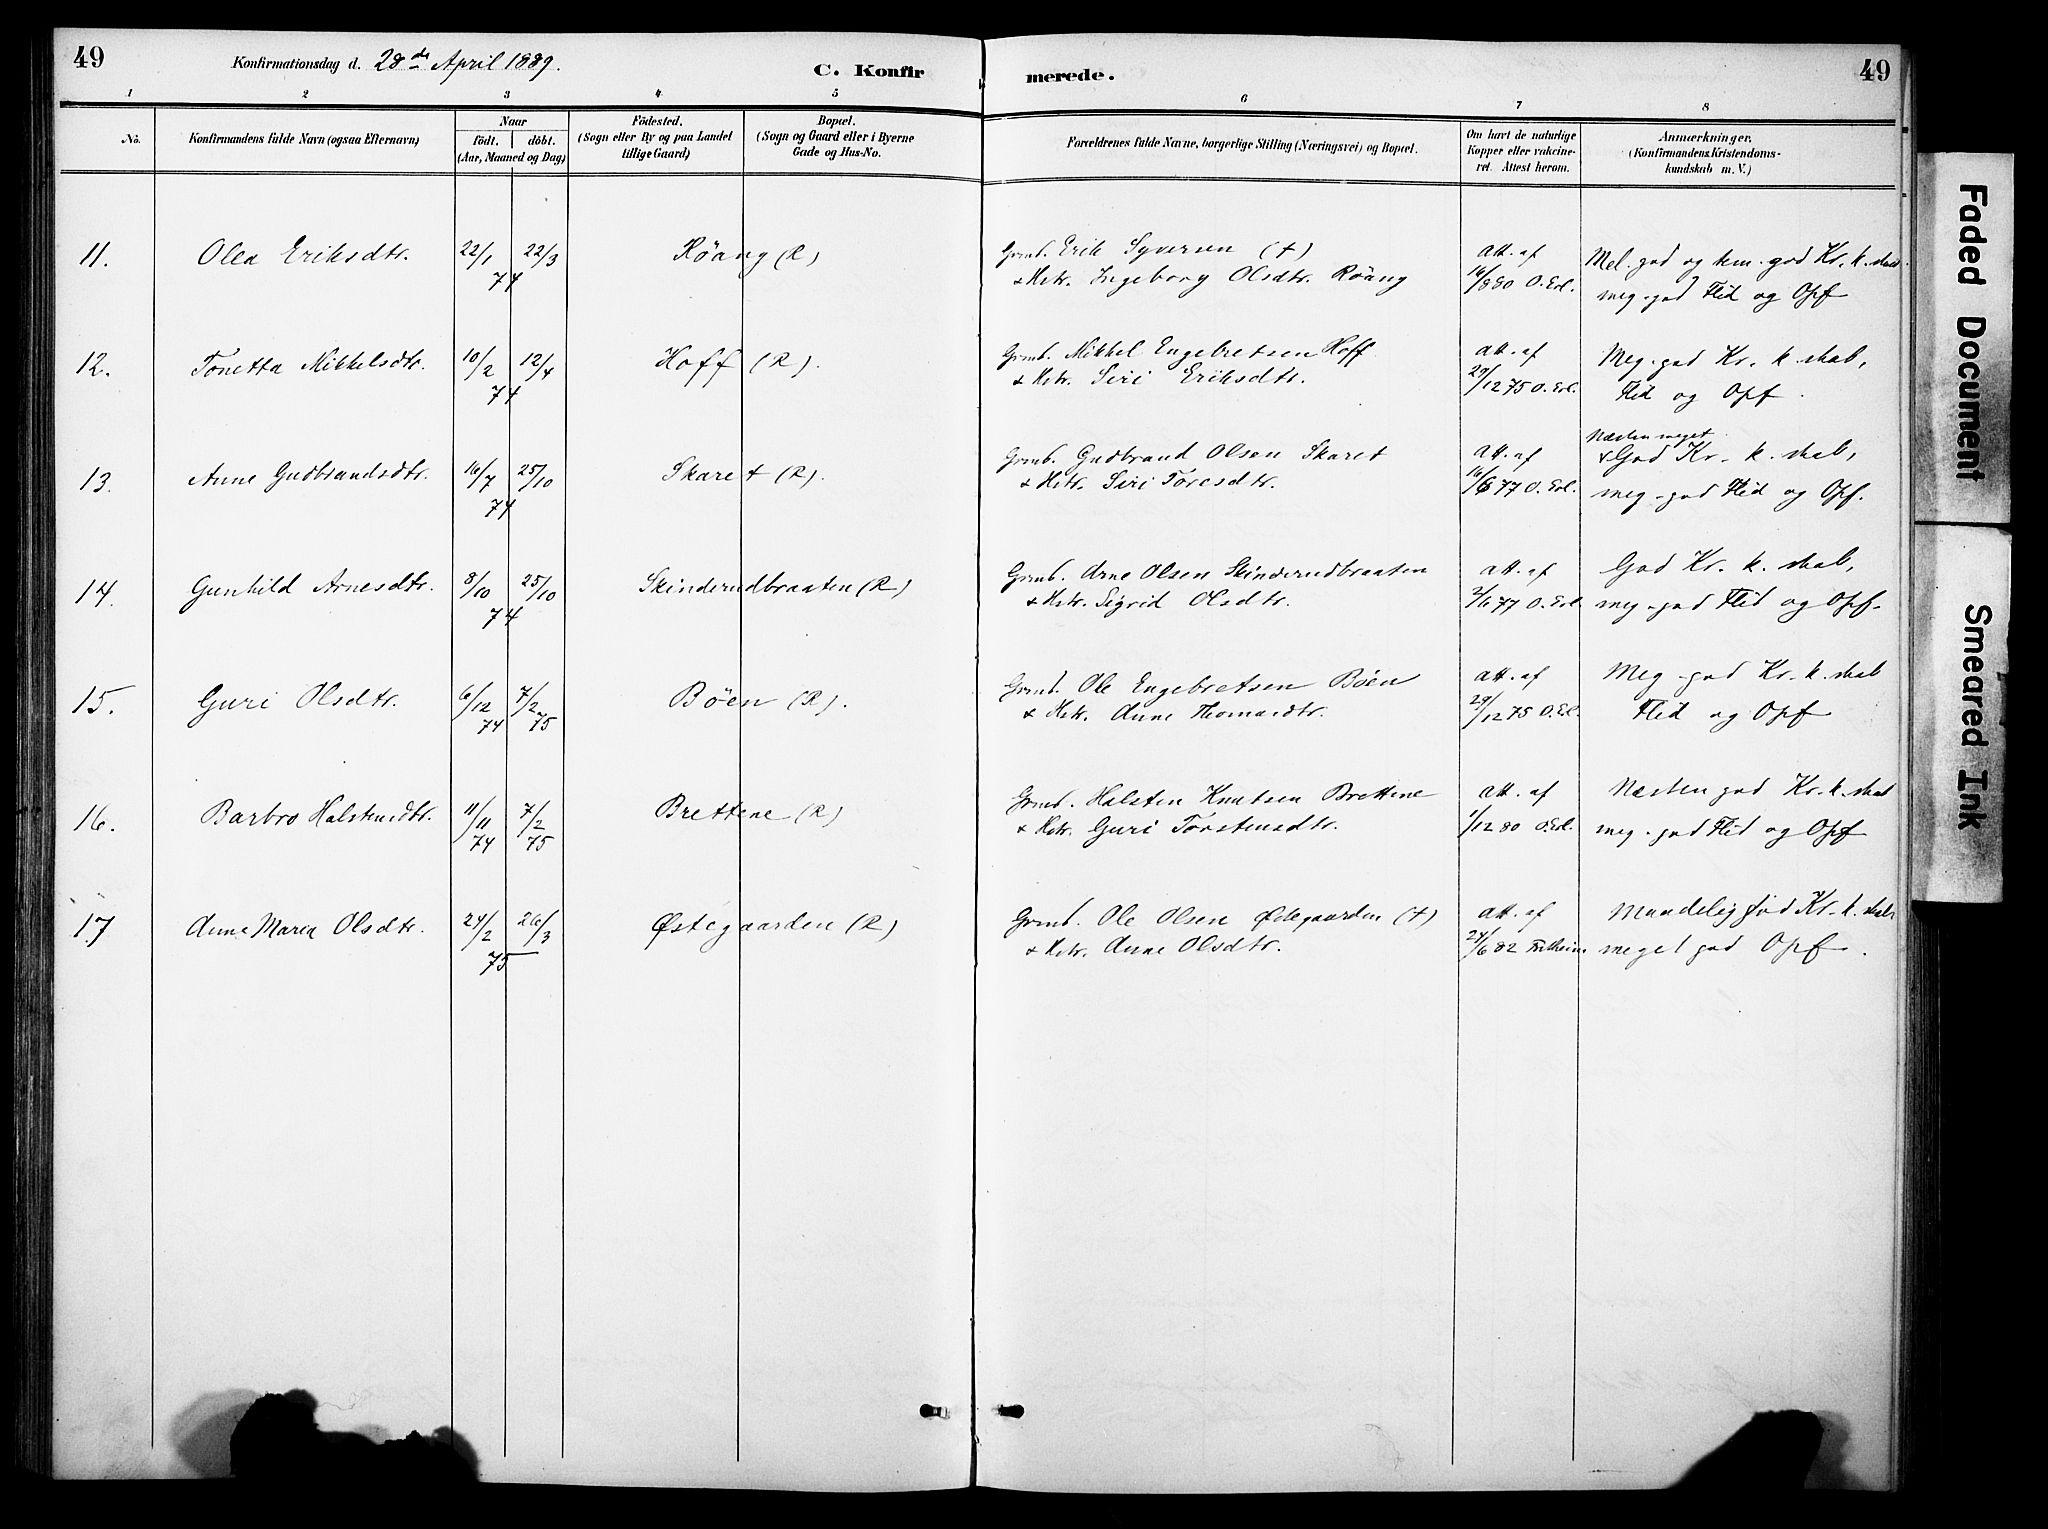 49
Konfirmationsdag d. 28de April 1889.
C. Konfir
merede.
49
1 2 3 4 5 6 7 8
No.
Konfirmandens fulde Navn (ogsaa Efternavn)
Naar
födt. döbt.
(Aar, Maaned og Dag)
Födested.
(Sogn eller By og paa Landet
tillige Gaard)
Bopæl.
(Sogn og Gaard eller i Byerne
Gade og Hus-No.
Forældrenes fulde Navne, borgerlige Stilling (Næringsvei) og Bopæl.
Om havt de naturlige
Kopper eller vakcine-
ret. Attest herom.
Anmærkninger.
(Konfirmandens Kristendoms-
kundskab m. V.)
11. Olea Eriksdtr. 22/1 22/3 74 Röang (R)
Grmb. Erik Syversen (+)
& Hstr. Ingeborg Olsdtr. Röang
att. af
16/8 80 O. Erl.
Mel. god og tem. god Kr. k. skab
meg. god Flid og Opf
12. Tonetta Mikkelsdtr. 10/2 12/4 74 Hoff (R).
Grmb. Mikkel Engebretsen Hoff
& Hstr. Siri Eriksdtr.
att. af
29/12 75 O. Erl.
Meg. god Kr. k. skab,
Flid og Opf.
13. Anne Gudbrandsdtr. 16/7 25/10 74 Skaret (R).
Grmb. Gudbrand Olsen Skaret
& Hstr. Siri Toresdtr.
att. af
16/6 77 O. Erl.
Næsten meget
& God Kr. k. skab,
meg. god Flid og Opf.
14. Gunhild Arnesdtr. 8/10 25/10 74 Skinderudbraaten (R)
Grmb. Arne Olsen Skinderudbraaten
& Hstr. Sigrid Olsdtr.
att. af
2/6 77 O. Erl.
God Kr. k. skab,
meg. god Flid og Opf.
15. Guri Olsdtr. 6/12 74 7/2 75 Böen (R).
Grmb. Ole Engebretsen Böen
& Hstr. Anne Thomasdtr.
att. af
29/12 75 O. Erl.
Meg. god Kr. k. skab
Flid og Opf
16. Barbro Halstensdtr. 11/11 74 7/2 75 Brettene (R)
Grmb. Halsten Knutsen Brettene
& Hstr. Guri Torstensdtr.
att. af
1/12 80 O. Erl.
Næsten god Kr. k. skab
meg. god Flid og Opf
17. Anne Maria Olsdtr. 24/2 26/3 75 Østegaarden (R)
Grmb. Ole Olsen Ødegaarden (+)
& Hstr. Anne Olsdtr.
att. af
24/6 82
Maadelig god Kr. k. skab
meget god Opf.
Faded Document
Smeared Ink